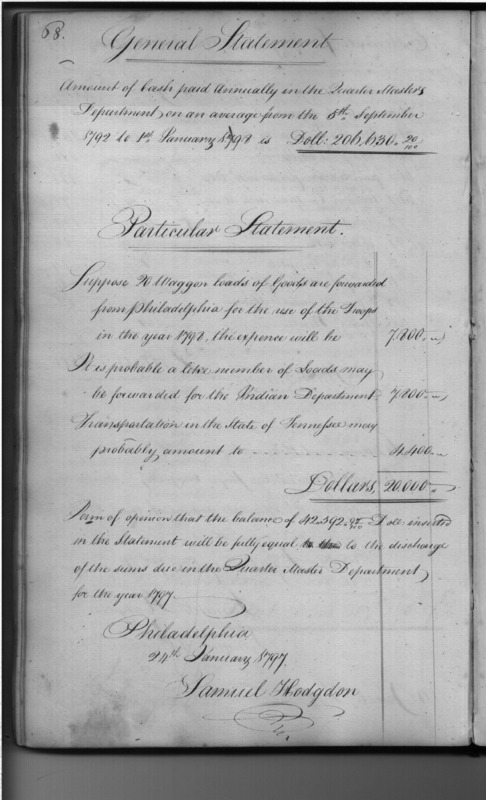 68.
General Statement
Amount of Cash paid Annually in the Quarter Master's
Department, on an average from the 8th September
1792 to 1st January 1792 is Doll: 206,630. 20/100
Particular Statement.
Suppose 20 Waggon loads of Goods are forwarded
from Philadelphia for the use of the Troops
in the year 1792, the expence will be 7.800.
It is probable a like number of Loads may
be forwarded for the Indian Department 7.800
Transportation in the State of Tennessee may
probably amount to 4.400
Dollars, 20.000
I am of opinion that the balance of 42.592. Doll: inserted
in the Statement will be fully equal to the discharge
of the sums due in the Quarter Master Department,
for the year 1797
Philadelphia
24th January 1797.
Samuel Hodgdon